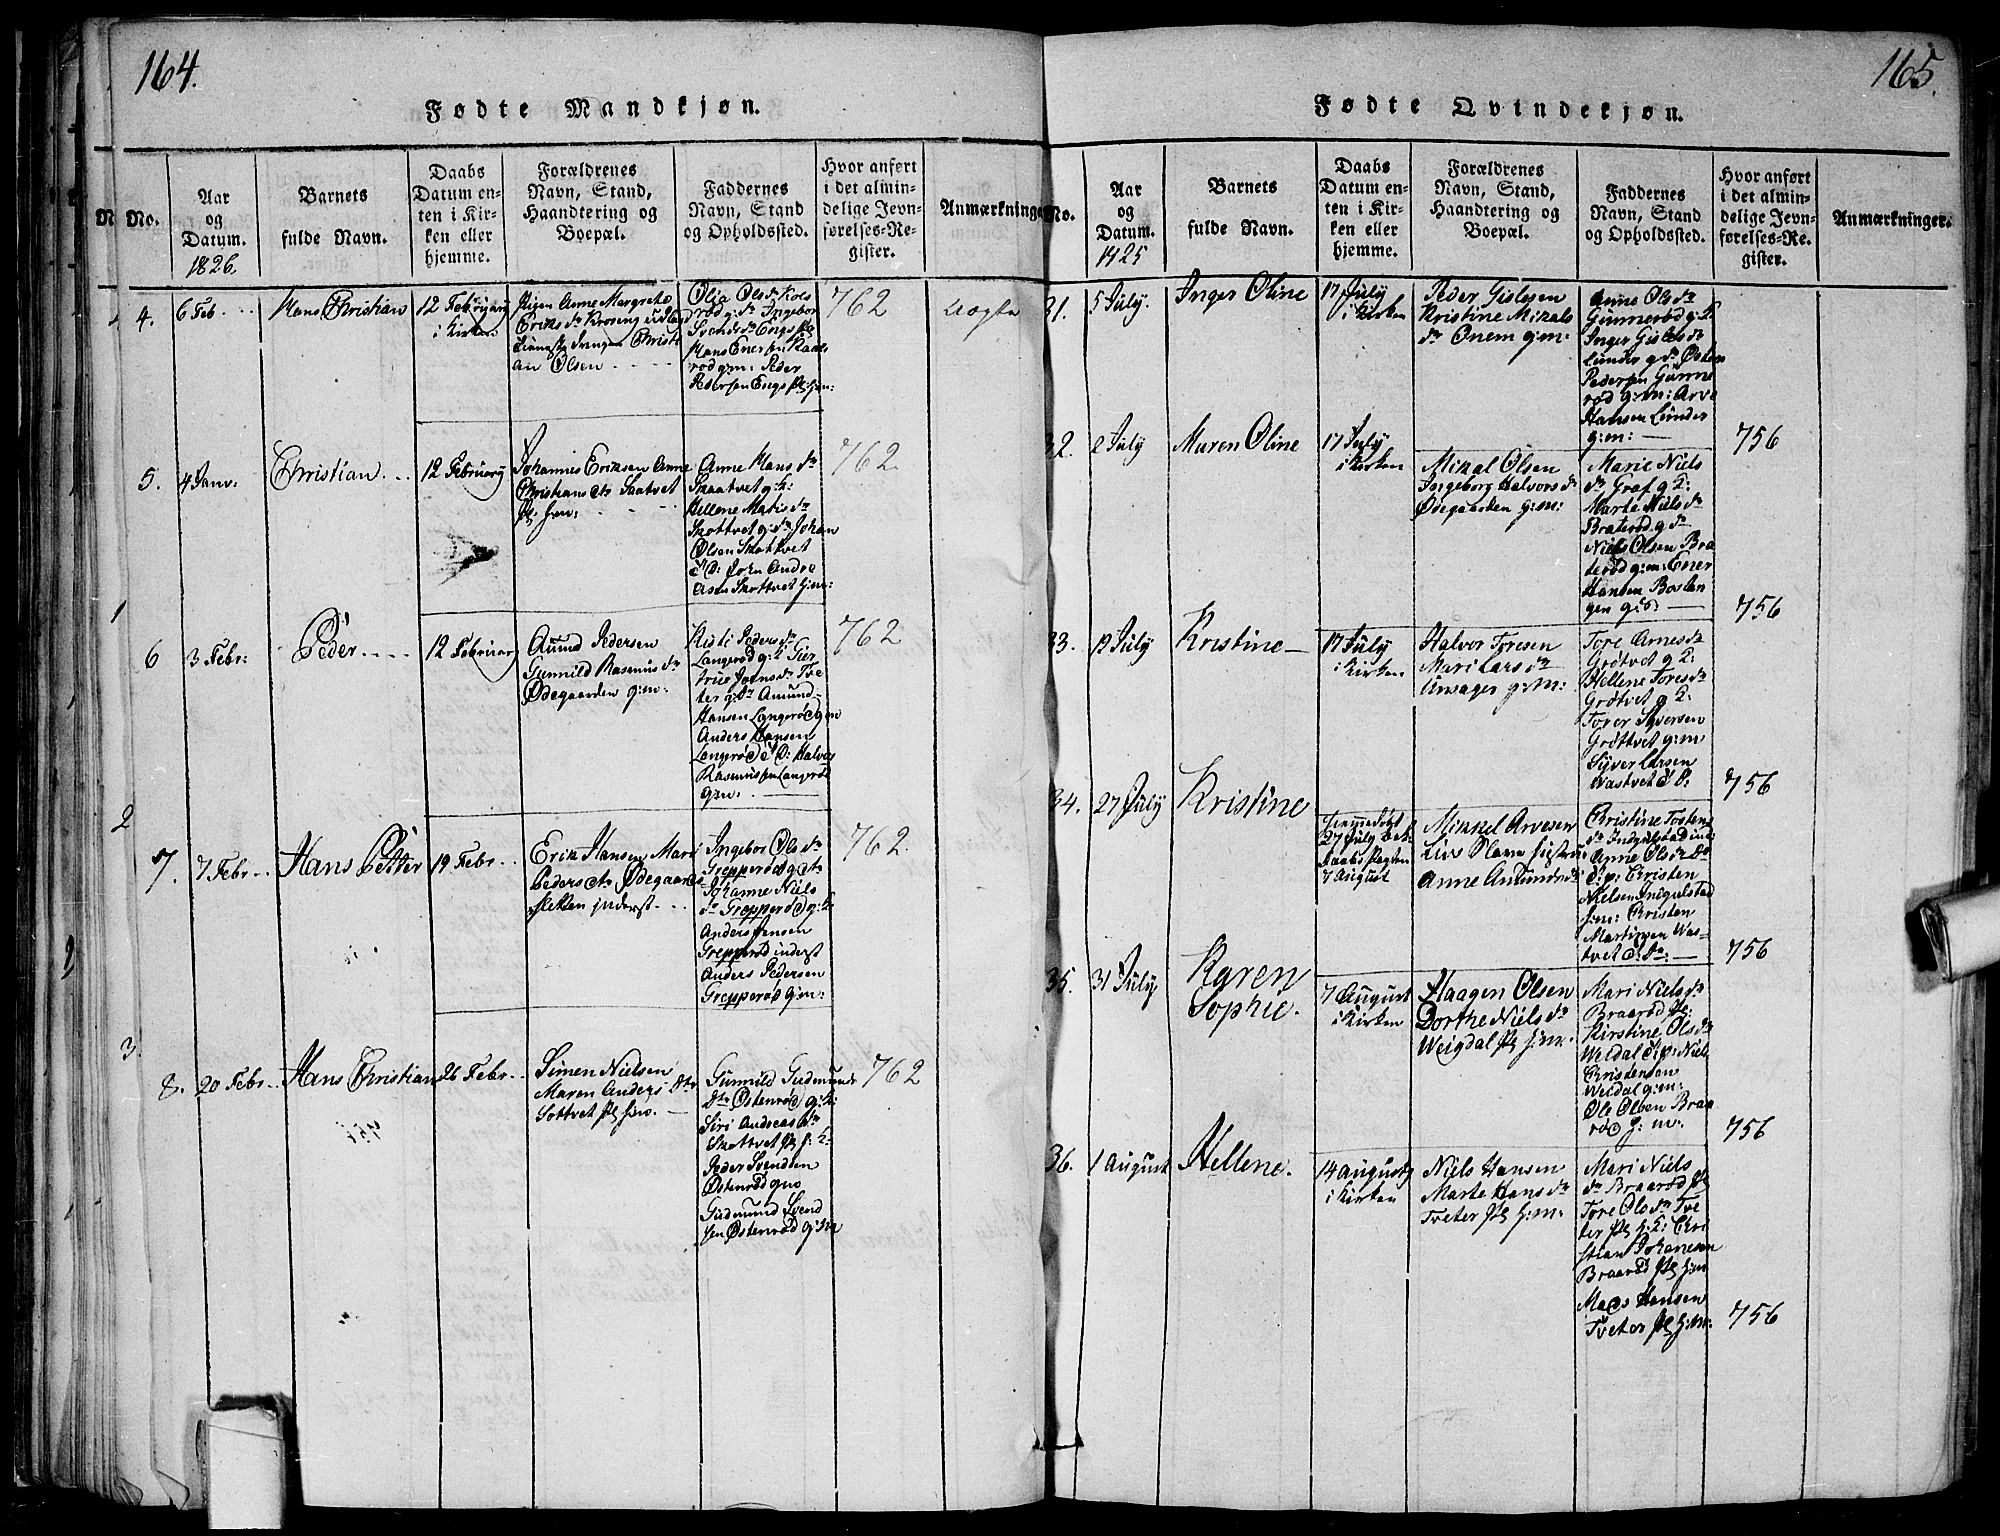 164.
Fødte Mandkjøn.
No.
Aar
og
Datum.
1826.
Barnets
fulde Navn.
Daabs
Datum en-
ten i Kir-
ken eller
hjemme.
Forældrenes
Navn, Stand,
Haandtering og
Boepæl.
Faddernes
Navn, Stand
og Opholdssted.
Hvor anført
i det almin-
delige Jevn-
førelses-Re-
gister.
Anmærkninger
4.
6 Feb
Hans Christian
12 Februari
i Kirken
Pigen Anne Margrete
Eriks dr
Christi
an Olsen
Olia Ols dr Kols
rød g: dr Ingebor
Svends dr Engs
Hans Ener sen
rød g:m: Peder
Pedersen Engs
762
Uægte
5.
4 Janv:
Christian
12 Februar
Johannes Eriksen Anne
Christians dr Saatvet
pl: h:m:
Anne Hans dr
Skaatvet g: k:
Hellene Matis dr
Skottvet g: dr Johan
Olsen Skottvet
Andre
asen Skottvet h:m:
762.
6
3 Febr:
Peder
12 Februar
Amund Pedersen
Gunnild Rasmus dr
Ødegaarden g:m:
Kisti Peders dr
Langerød g: k: Gier
true Joens dr Tve
ter g: dr Amund
Hansen Langerød g:m
Anders Hansen
Langerød Halvor
Rasmussen Langerød
g:m:
762
7.
7 Febr
Hans Petter
19 Febr
Erik Hansen Mari
Peders dr Ødegaards
inderst
Ingebor Ols dr
Grepperød g: dr
Johanne Niels
dr Grepperød g: k
Anders Jensen
Grepperød inderst
Anders Pedersen
Grepperød g:m:
762.
8.
20 Febr
Hans Christian
26 Febr
Simen Nielsen
Maren Anders dtr
Sottvet pl h:m.
Gunnild Gudmunds
dtr Østenrød g: k:
Siri Andreas dr
Skottvet pl h: k:
Peder Svendsen
Østenrød g:m
Gudmund Svend
sen Østenrød g:m
762
165.
Fødte Qvindekjøn.
No.
Aar
og
Datum.
1825
Barnets
fulde Navn.
Daabs
Datum en-
ten i Kir-
ken eller
hjemme.
Forældrenes
Navn, Stand,
Haandtering og
Boepæl.
Faddernes
Navn, Stand
og Opholdssted.
Hvor anført
i det almin-
delige Jevn-
førelses-Re-
gister.
Anmærkninger.
31.
5 July.
Inger Oline
17 July
i Kirken
Peder Gislesen
Kristine Mikals
dr Onem g:m:
Anne Ols dr
Gunnerød g: k
Inger Gisles dr
Lunder g: dr Osten
Pedersen Gunne
rød g:m: Arve
Hansen Lunder
g:m:
756
32.
2 July
Maren Oline
17 July
i Kirken
Mikal Olsen
Ingeborg Halvors dr
Ødegaarden g:m:
Marie Niels
dr Graf g: k:
Marte Niels dr
Braterød g: dr
Niels Olsen Bra
terød g:m: Ener
Hansen Boslan
gen
756
33.
12 July
Kristine
17 July
i Kirken
Halvor Toresen
Mari Lars dr
Unsager g:m:
Tore Arnes dr
Grøtvet g: k:
Hellene Tores dr
Grøtvet g: k:
Torer Syversen
Grøttvet g:m
Syver Larsen
Wastvet
756
34.
27 July
Kristine
Hjemmedøbt
27 July
7 August
Mikkel Arvesen
Anne Amunds dr
Christine Tostens
dr Ingulstad
Anne Ols dr
Christen
Nielsen Ingulstad
h:m: Christen
Martinsen Was-
tvet
756
35.
31 July
Karen
Sophie.
7 August
i Kirken
Haagen Olsen
Dorthe Niels dr
Weigdal pl h:m.
Mari Niels dr
Braarød pl:
Kirstine Ols dr
Weidal Niels
Christensen
Weidal g:m:
Ole Olsen Braa
rød h: m.
756
36.
1 August
Hellene.
14 August
i Kirken
Niels Hansen
Marte Hans dr
Tveter pl h:m:
Mari Niels
dr Braarød pl
Tore Ols dr Tve
ter pl h: k: Cri
stian Johanesen
Braarød pl h:m
Mads Hansen
Tveter pl h:m:
756